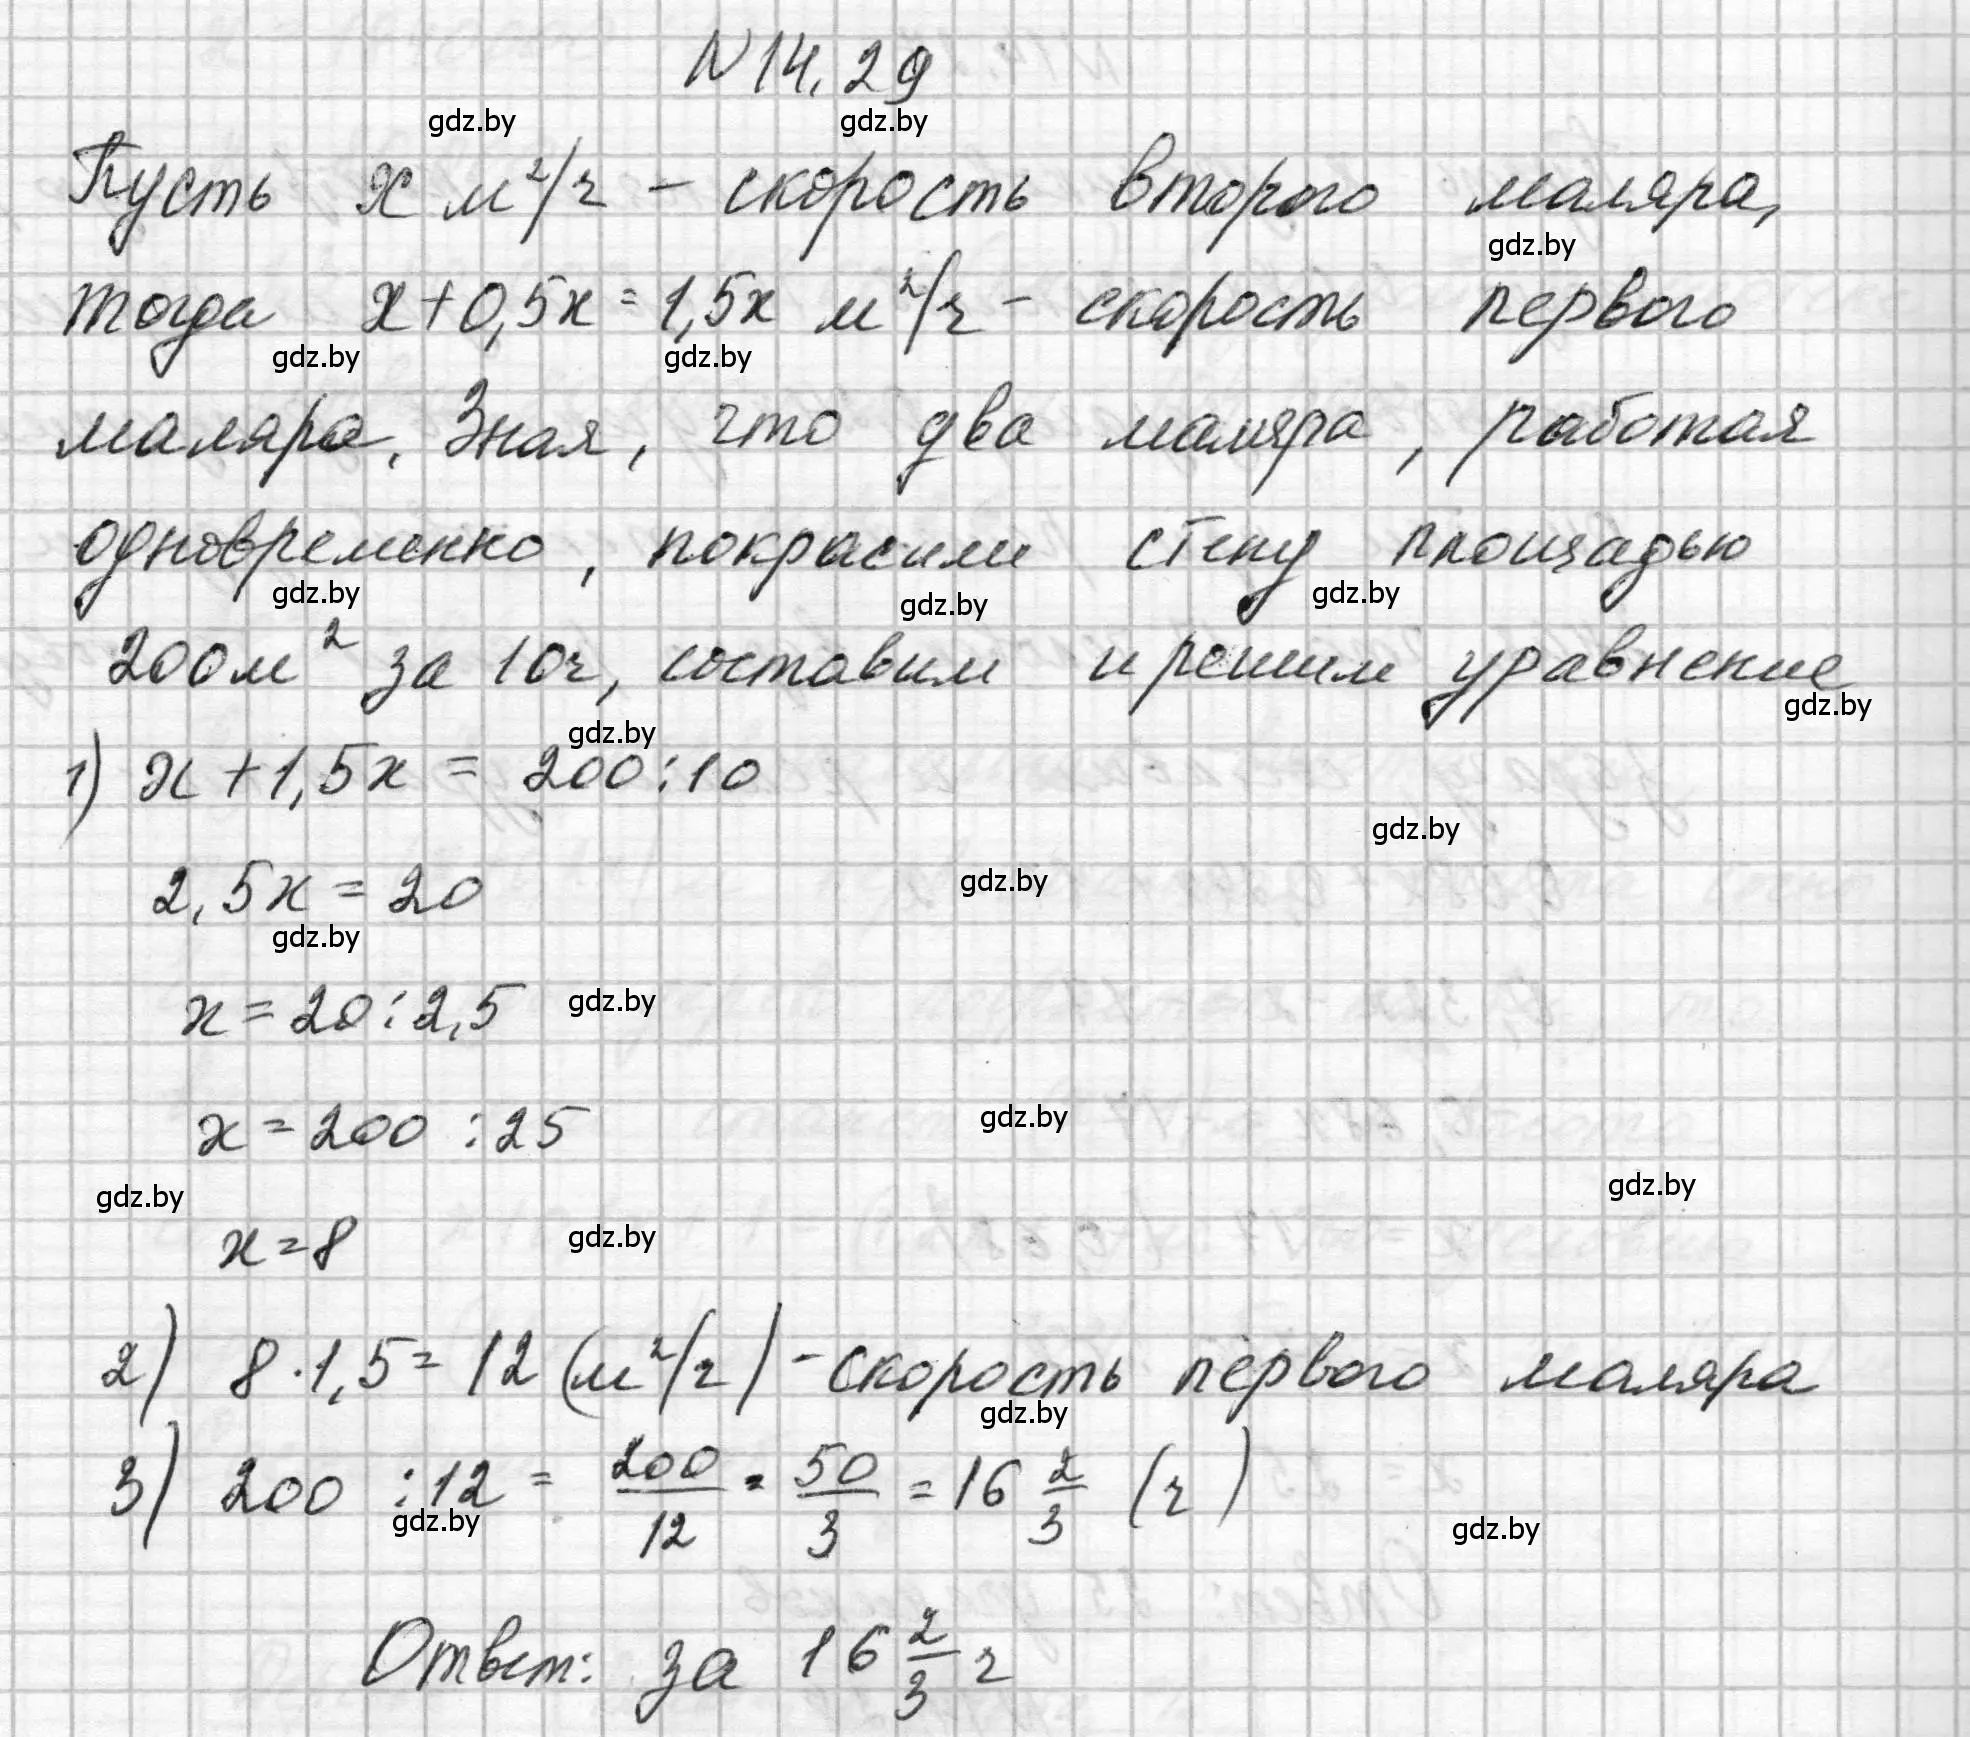 N 14.29
gdz.by gdz.by
Пусть x м²/ч - скорость второго маляра,
gdz.by
тогда x+0,5x=1,5x м²/ч - скорость первого
gdz.by gdz.by
маляра. Зная, что два маляра, работая
одновременно, покрасили стену площадью
gdz.by gdz.by gdz.by
200м² за 10ч, составим и решим уравнение
gdz.by
gdz.by
1) x+1,5x = 200:10
gdz.by
2,5x=20
gdz.by
gdz.by
x=20:2,5 gdz.by
x=200:25
gdz.by
gdz.by gdz.by
x=8 gdz.by
2) 8·1,5=12 (м²/ч) - скорость первого маляра
gdz.by
3) 200:12 = 200/12 = 50/3 = 16 2/3 (ч)
gdz.by gdz.by
Ответ: за 16 2/3 ч